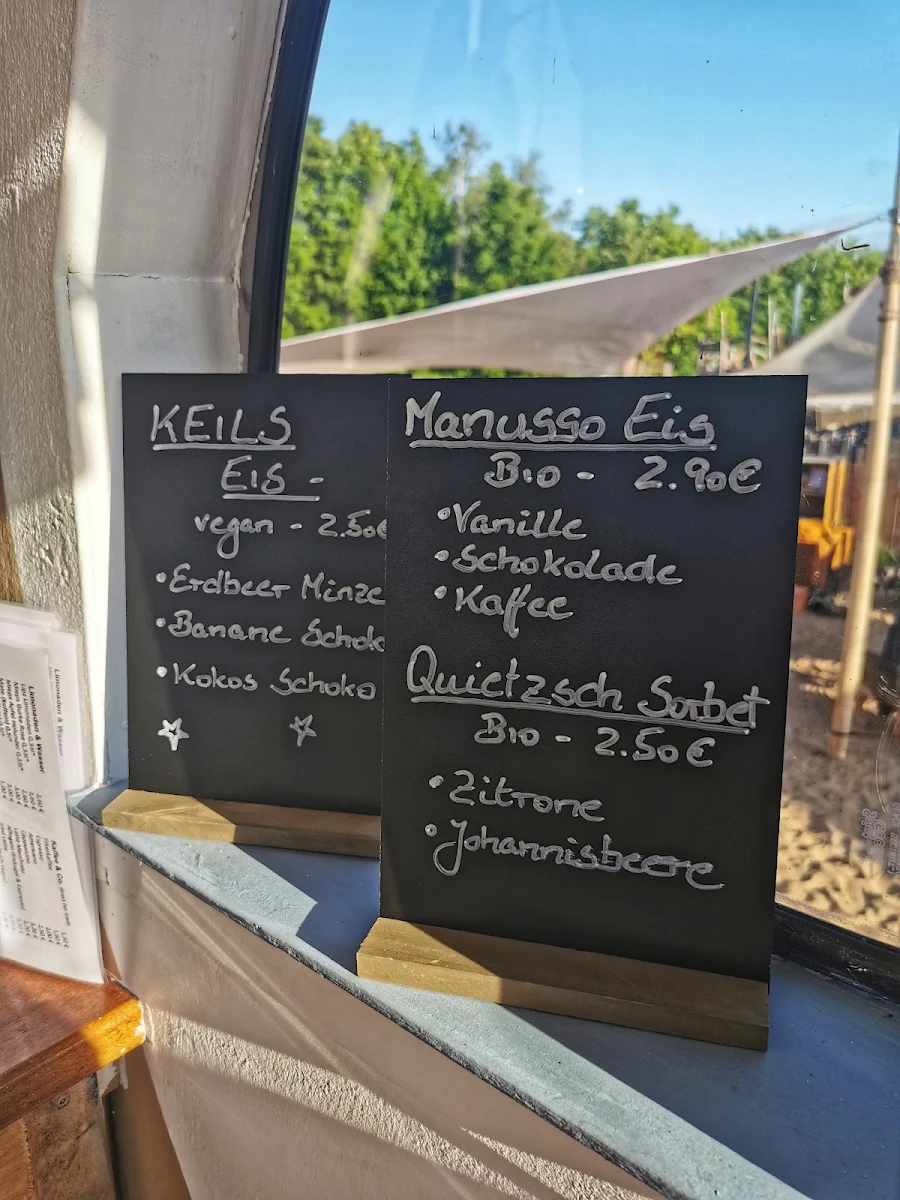 KEILS
Eis -
vegan - 2.50€
• Erdbeer Minze
• Banane Schok
• Kokos Schoko
Manusso Eis
Bio - 2.90€
• Vanille
• Schokolade
• Kaffee
Quietzsch Sorbet
Bio - 2.50€
• Zitrone
• Johannisbeere
Limonaden & Wasser
Kaffee & Co.